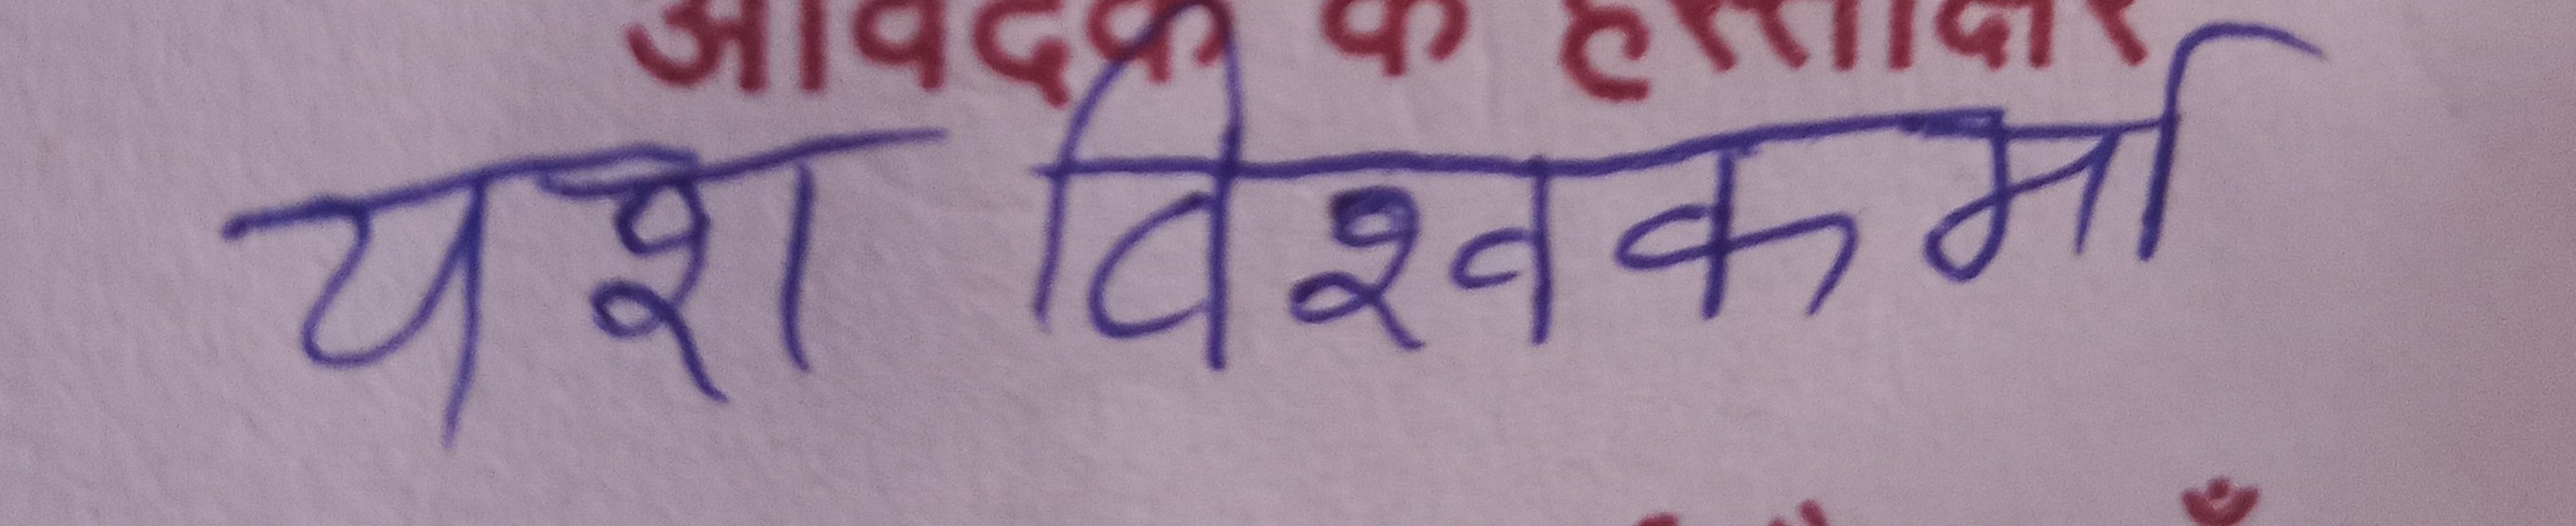 आवेदक के हस्ताक्षर
यश विश्वकर्मा